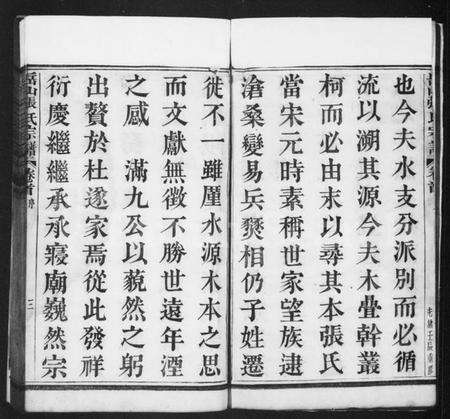 也今夫水支分派別而必循
流以溯其源今夫木疊幹叢
柯而必由末以尋其本張氏
當宋元時素稱世家望族逮
滄桑變易兵燹相仍子姓遷
徙不一雖厪水源木本之思
而文獻無徵不勝世遠年湮
之感 滿九公以藐然之躬
出贅於杜遂家焉從此發祥
衍慶繼繼承承寢廟巍然宗
岳山張氏宗譜 卷首 序 三